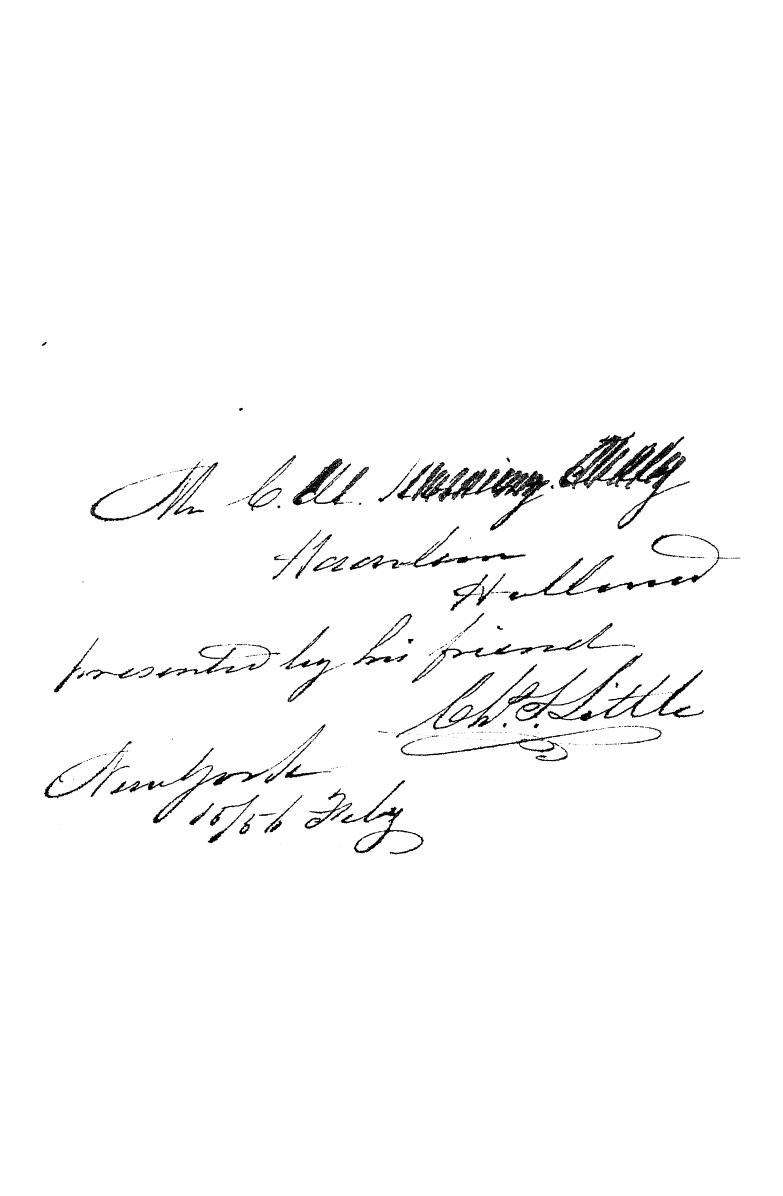 Mr C.
Haarlem
Holland
presented by his friend
Chs. F. Little
New York
15/56 Feby